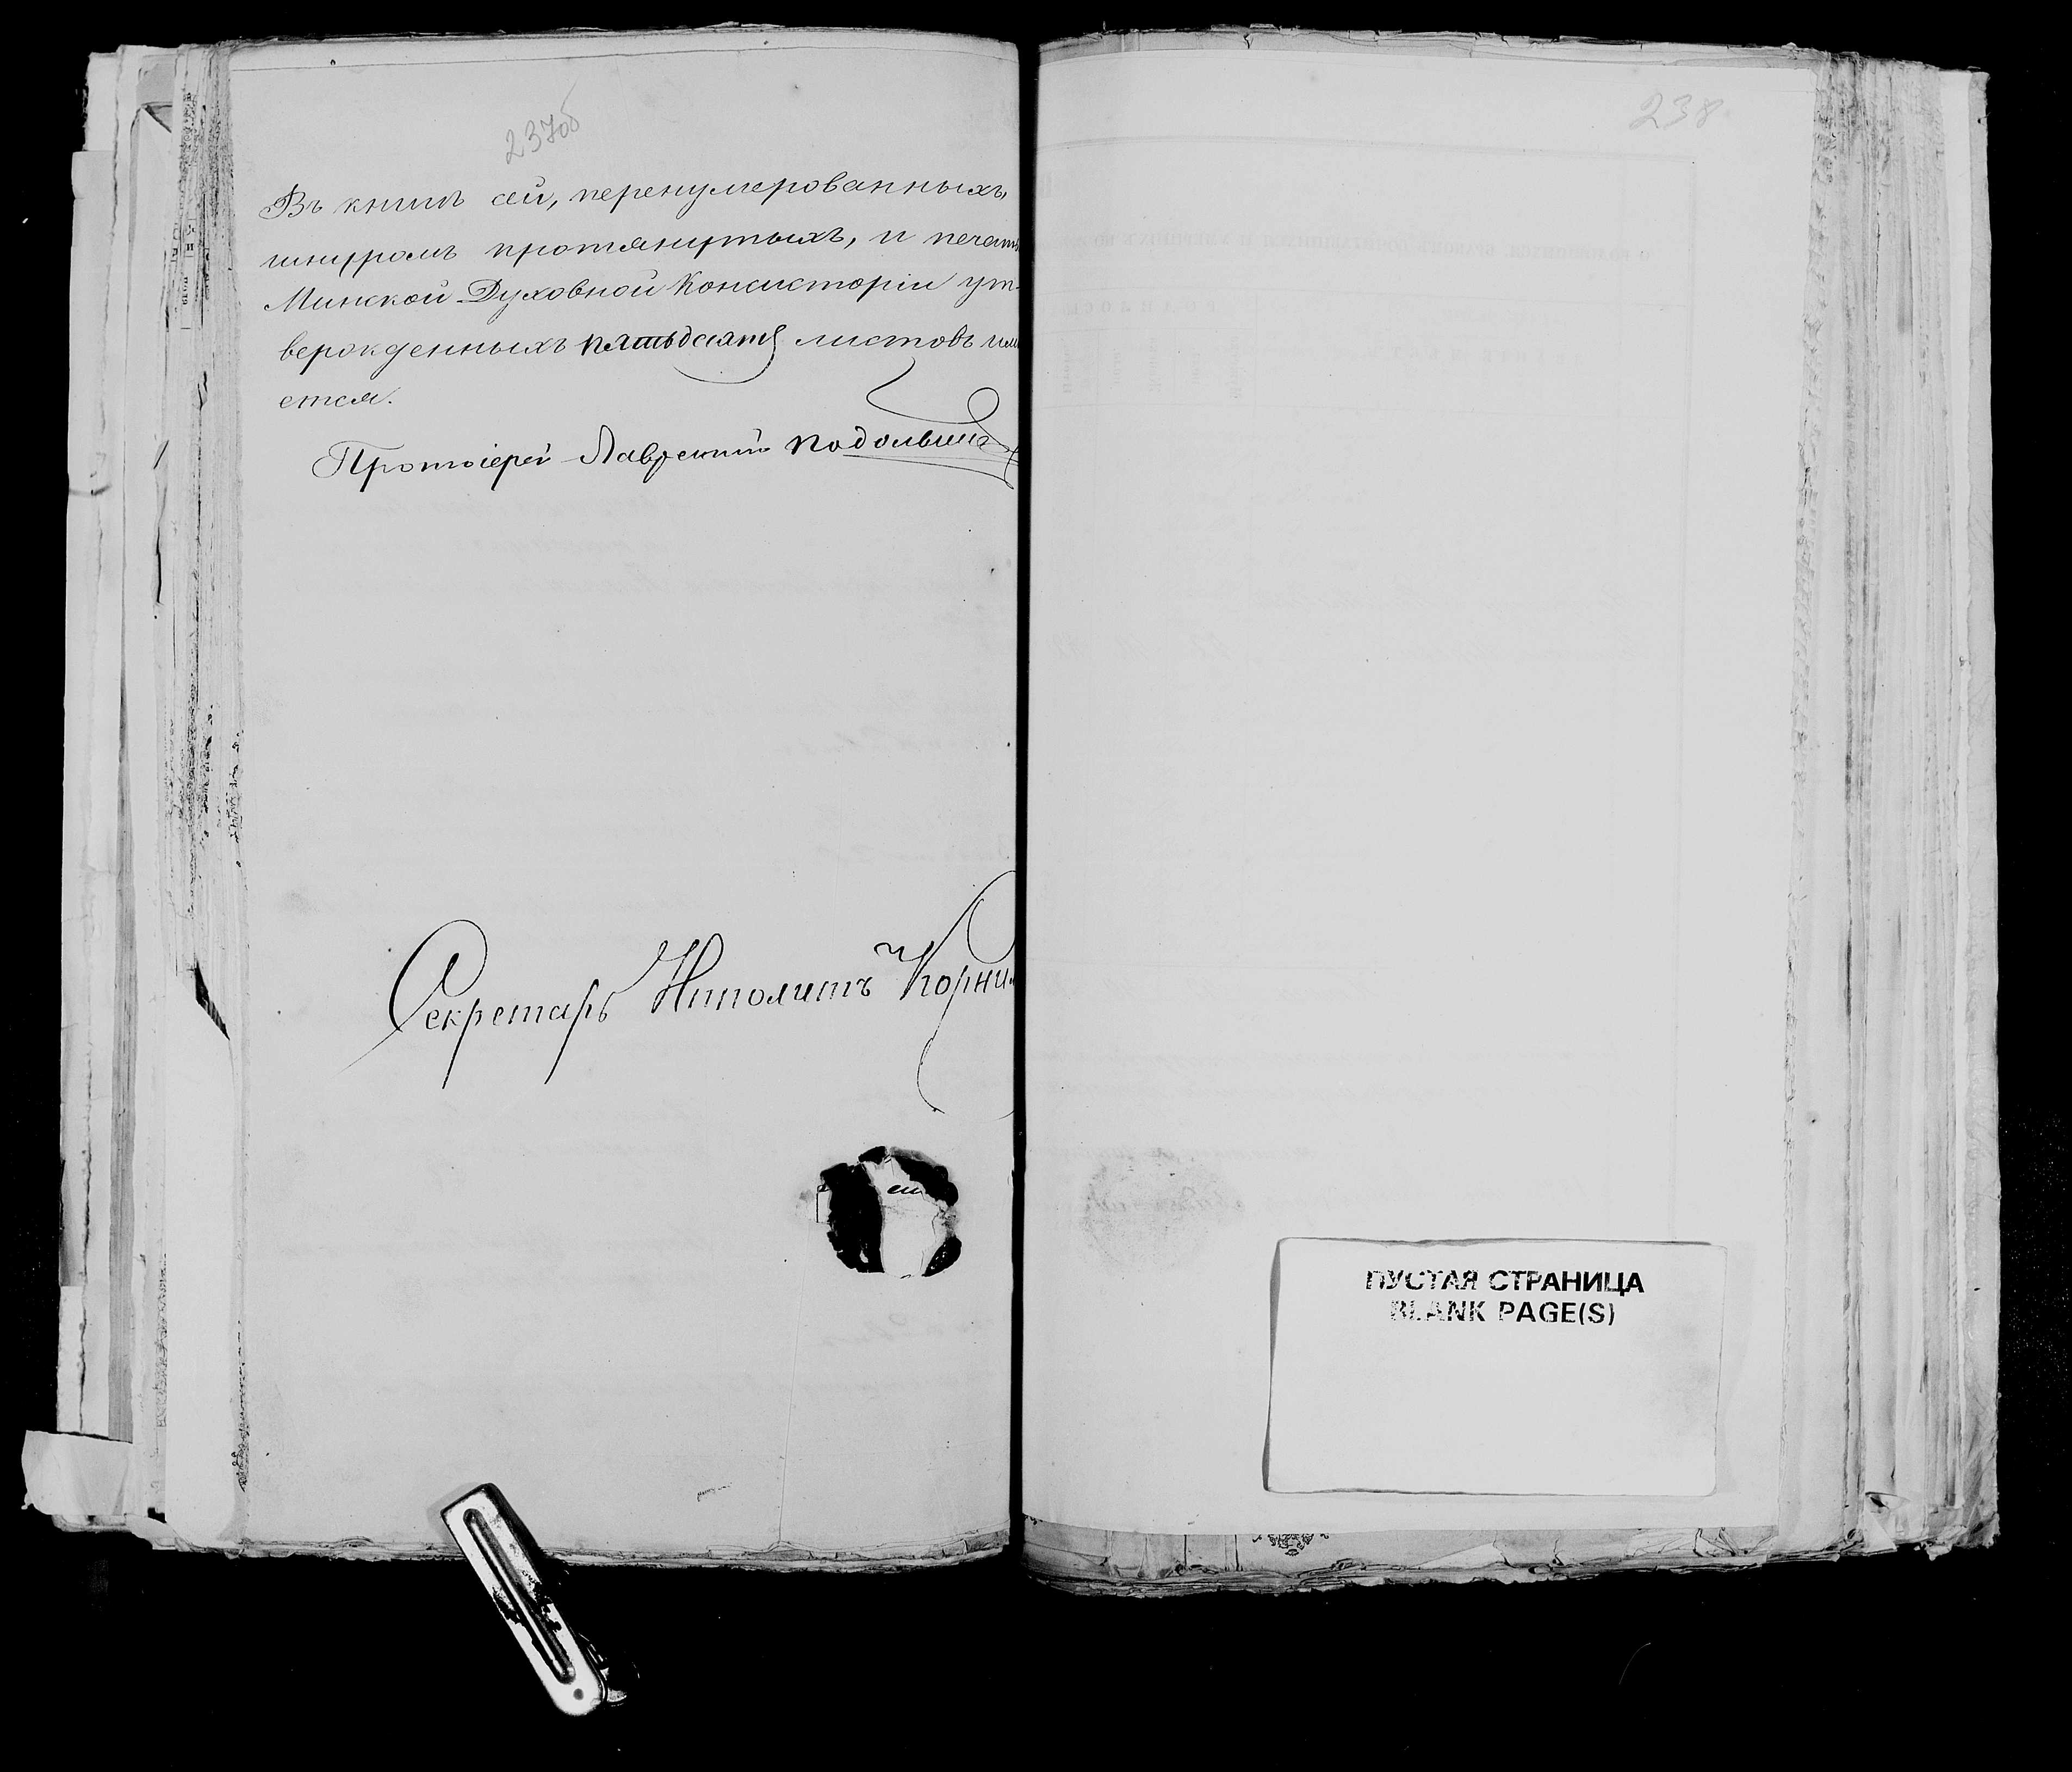 237об
Въ книгѣ сей, перенумерованныхъ,
шнуромъ протянутыхъ, и печать
Минской Духовной Консисторіи ут-
вержденныхъ пятьдесятъ листовъ име
ется.
Протоіерей Лаврентій Подольский
Секретарь Ипполитъ Корнил
238
ПУСТАЯ СТРАНИЦА
BLANK PAGE(S)